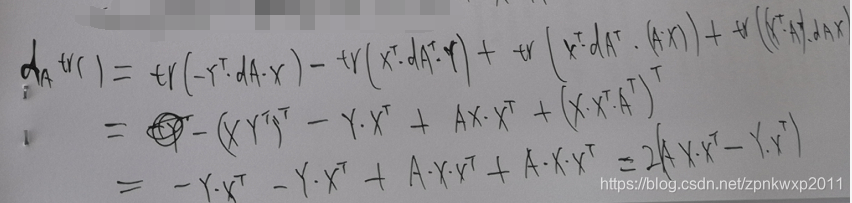 d_A tr( ) = tr(-Y^T·dA·X) - tr(X^T·dA^T·Y) + tr(X^T·dA^T·(A·X)) + tr((X^T·A^T)·dAX)
= - (XY^T)^T - Y·X^T + AX·X^T + (X·X^T·A^T)^T
= -Y·X^T - Y·X^T + A·X·X^T + A·X·X^T = 2(AX·X^T - Y·X^T)
https://blog.csdn.net/zpnkwxp2011